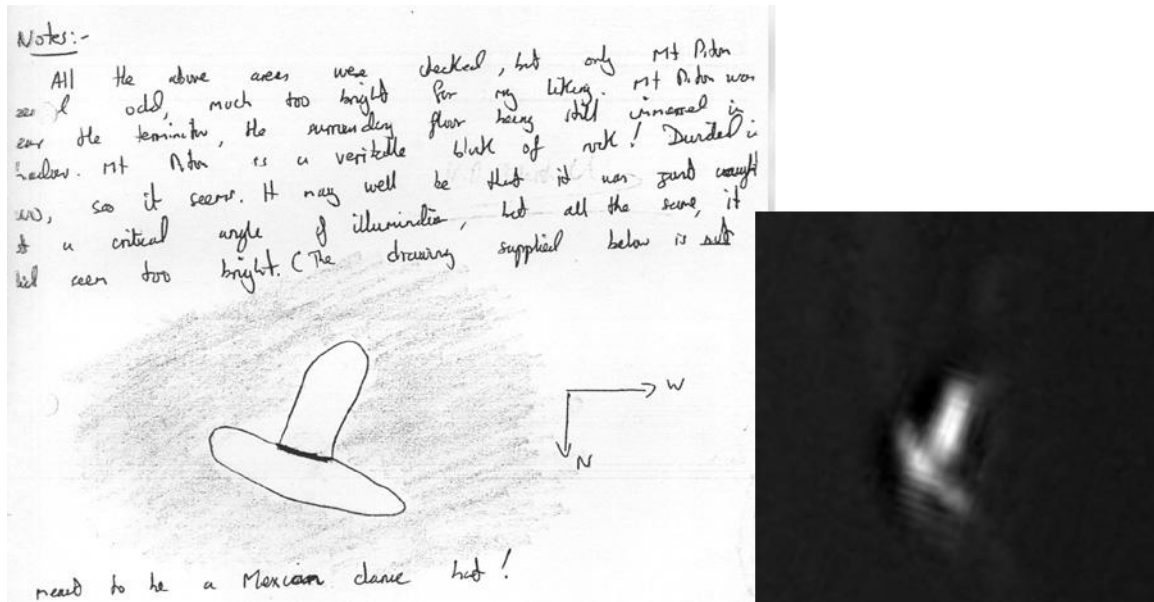 Notes:-
All the above areas were checked, but only Mt Piton
odd, much too bright for my liking. Mt Piton was
the terminator, the surrounding floor being still immersed in
Mt Piton is a veritable block of rock! Divided in
so it seems. It may well be that it was just caught
a critical angle of illumination, but all the same, it
seem too bright. (The drawing supplied below is not
W
N
meant to be a Mexican dance hat!